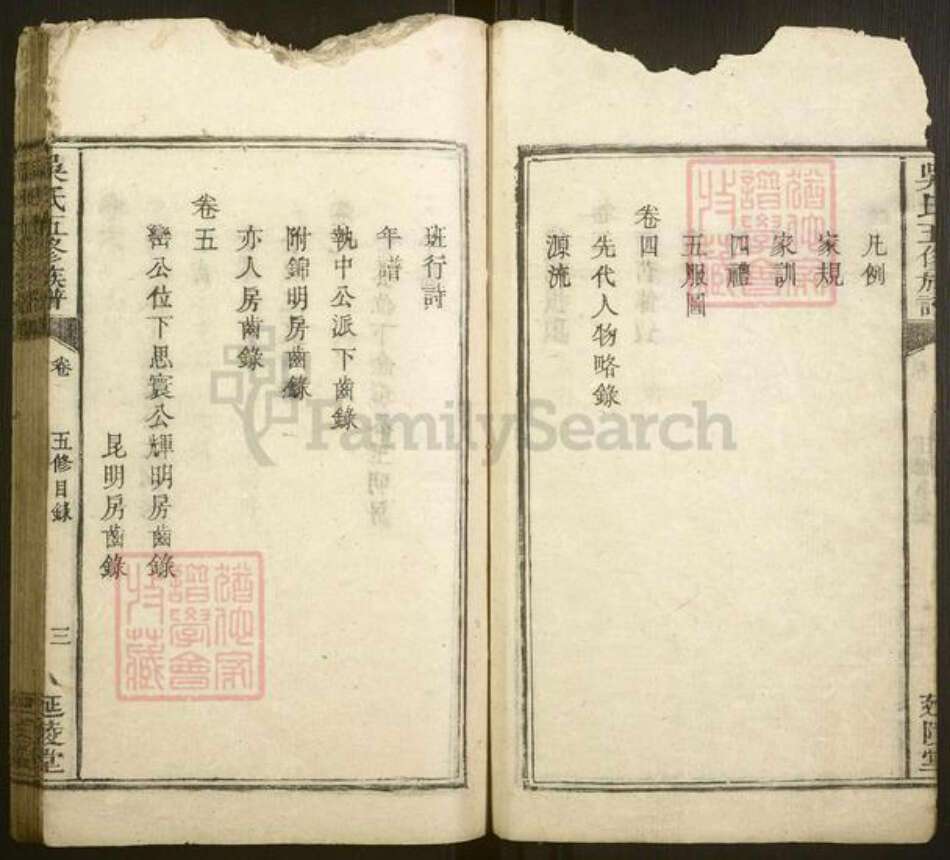 吳氏五修族譜
延陵堂
凡例
家規
家訓
四禮
五服圖
卷四
先代人物略錄
源流
班行詩
年譜
執中公派下齒錄
附錦明房齒錄
亦人房齒錄
卷五
巒公位下思寰公輝明房齒錄
昆明房齒錄
吳氏五修族譜
卷
五修目錄
三
延陵堂
猶他家譜學會特藏
猶他家譜學會特藏
FamilySearch